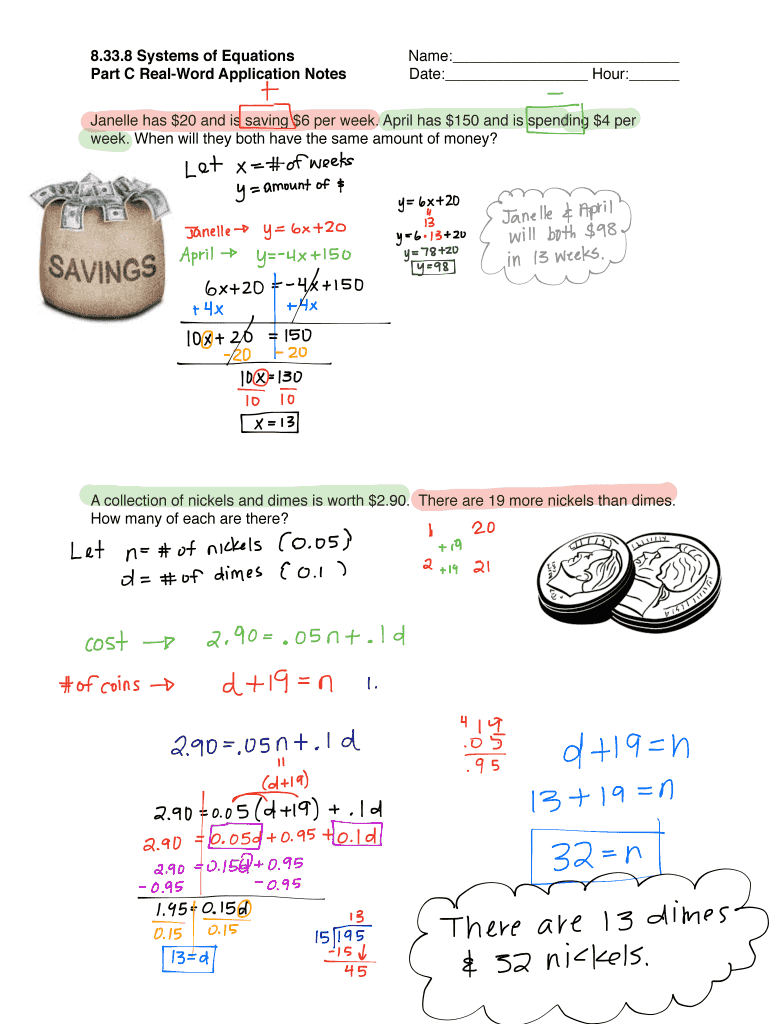 8.33.8 Systems of Equations Name:____________________________
Part C Real-Word Application Notes Date:_________________ Hour:______
+ −
Janelle has $20 and is saving $6 per week. April has $150 and is spending $4 per
week. When will they both have the same amount of money?
Let x = # of weeks
y = amount of $
Janelle → y = 6x+20
April → y=-4x+150
6x+20 = -4x+150
+4x +4x
10x+20 = 150
-20 -20
10x=130
10 10
x=13
y=6x+20
13
y=6·13+20
y=78+20
y=98
Janelle & April
will both $98
in 13 weeks.
SAVINGS
A collection of nickels and dimes is worth $2.90. There are 19 more nickels than dimes.
How many of each are there?
Let n= # of nickels (0.05)
d= # of dimes (0.1)
1 +19 20
2 +19 21
cost → 2.90 = .05n+.1d
# of coins → d+19=n 1.
2.90=.05n+.1d
=
(d+19)
2.90=0.05(d+19)+.1d
2.90=0.05d+0.95+0.1d
2.90=0.15d+0.95
-0.95 -0.95
1.95=0.15d
0.15 0.15
13=d
13
15 195
-15↓
45
4 19
.05
.95
d+19=n
13+19=n
32=n
There are 13 dimes
& 32 nickels.